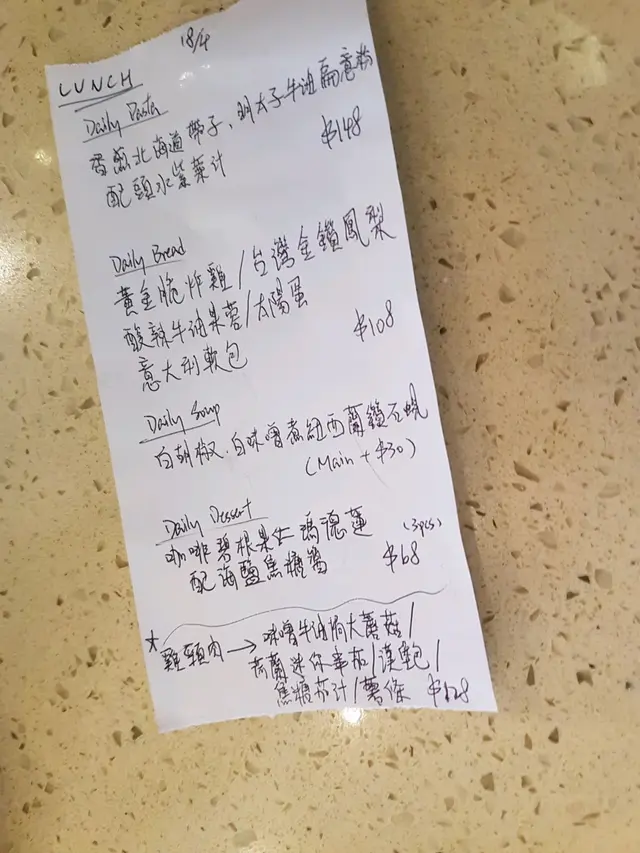 18/4
LUNCH
Daily Pasta
香煎北海道帶子、明太子牛油扁意粉
配頭水紫菜汁 $148
Daily Bread
黃金脆炸雞/台灣金鑽鳳梨
酸辣牛油果蓉/太陽蛋
意大利軟包 $108
Daily Soup
白胡椒、白味噌煮紐西蘭鑽石蜆
(Main + $30)
Daily Dessert
咖啡碧根果仁瑪德蓮 (3pcs)
配海鹽焦糖醬 $68
*雞頸肉→味噌牛油焗大蘑菇/
荷蘭迷你車茄/漢堡包/
焦糖茄汁/薯條 $128